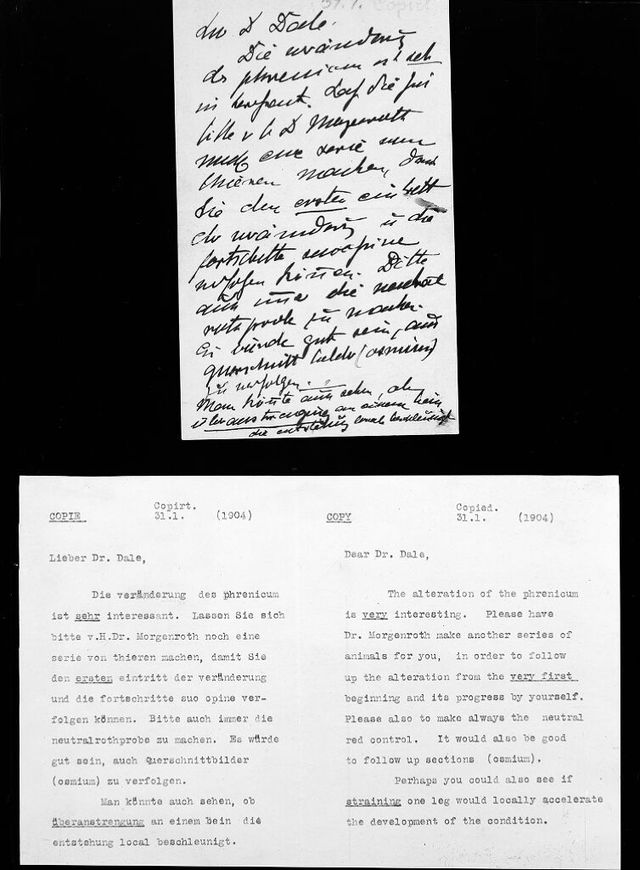 31.1. Copirt
Dr Dale.
Die veränderung
des phrenicum ist sehr
interessant. Lassen Sie
bitte v. H. Dr Morgenroth
noch eine serie von
thieren machen, damit
Sie den ersten eintritt
der veränderung u die
fortschritte suo opine
verfolgen können. Bitte
auch immer die neutral
rothprobe zu machen.
Es würde gut sein, auch
querschnittbilder (osmium)
zu verfolgen.
Man könnte auch sehen, ob
überanstrengung an einem bein
die entstehung local beschleunigt
COPIE
Copirt.
31.1. (1904)
Lieber Dr. Dale,
Die veränderung des phrenicum
ist sehr interessant. Lassen Sie sich
bitte v.H.Dr. Morgenroth noch eine
serie von thieren machen, damit Sie
den ersten eintritt der veränderung
und die fortschritte suo opine ver-
folgen können. Bitte auch immer die
neutralrothprobe zu machen. Es würde
gut sein, auch Querschnittbilder
(osmium) zu verfolgen.
Man könnte auch sehen, ob
überanstrengung an einem bein die
entstehung local beschleunigt.
COPY
Copied.
31.1. (1904)
Dear Dr. Dale,
The alteration of the phrenicum
is very interesting. Please have
Dr. Morgenroth make another series of
animals for you, in order to follow
up the alteration from the very first
beginning and its progress by yourself.
Please also to make always the neutral
red control. It would also be good
to follow up sections (osmium).
Perhaps you could also see if
straining one leg would locally accelerate
the development of the condition.